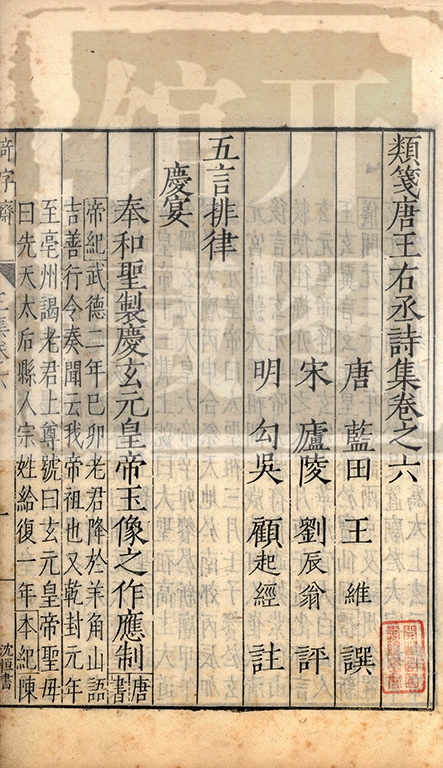 類箋唐王右丞詩集卷之六
唐 藍田 王維 譔
宋 廬陵 劉辰翁 評
明 勾吳 顧起經 註
五言排律
慶宴
奉和聖製慶玄元皇帝玉像之作應制 唐書
帝紀武德二年巳卯老君降於羊角山語
吉善行令奏聞云我帝祖也又乾封元年
至亳州謁老君上尊號曰玄元皇帝聖母
曰先天太后縣人宗姓給復一年本紀陳
沈恒書